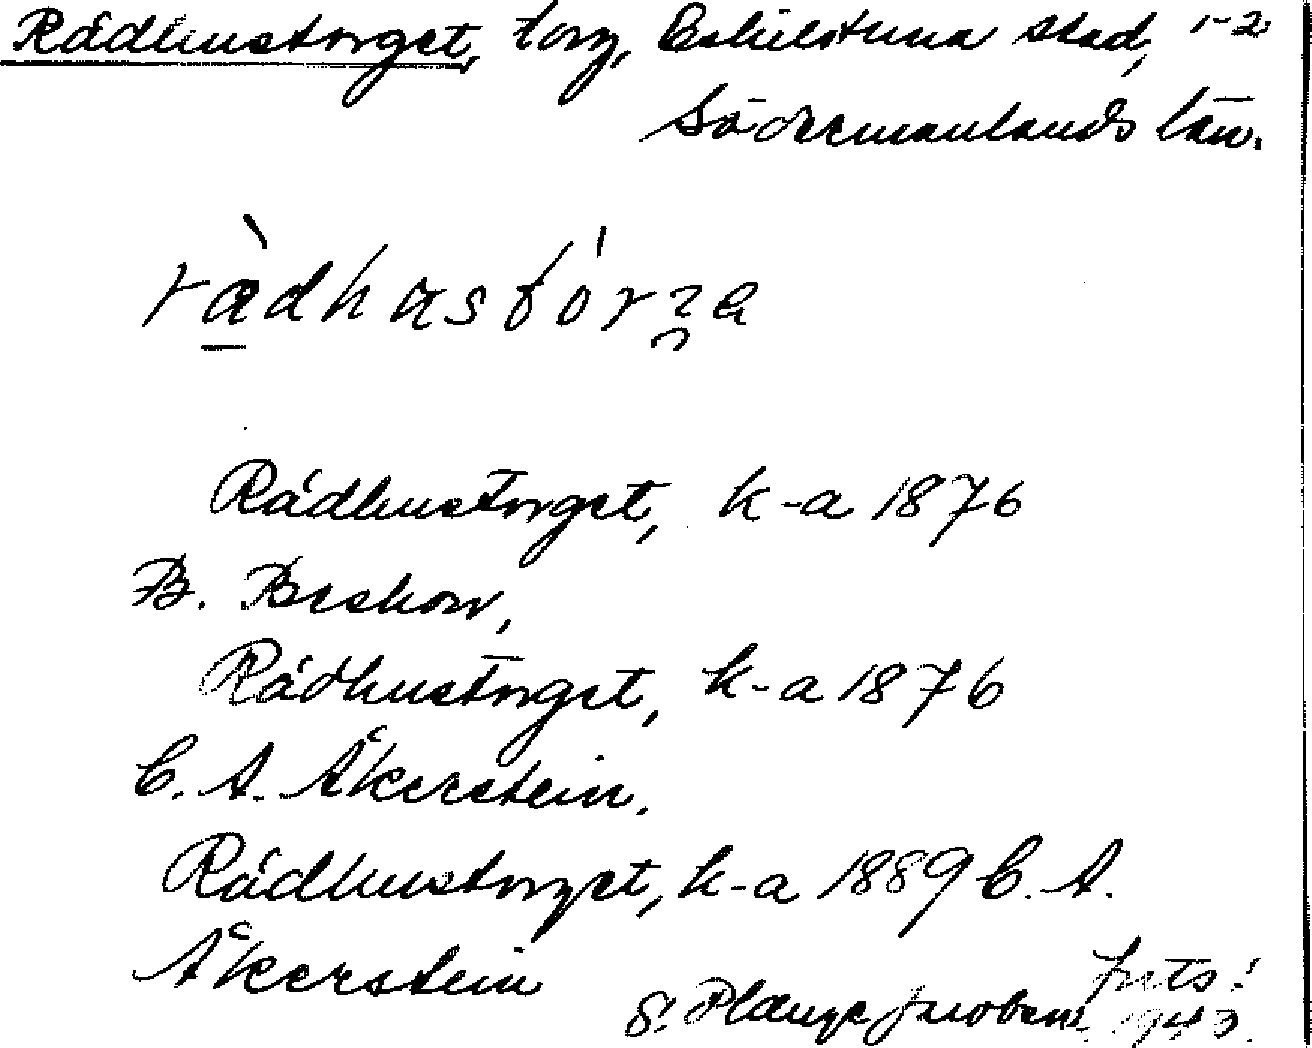 Rådhustorget, torg, Eskilstuna stad, 1-2
Södermanlands län.
Rådhustorget, k-a 1876
B. Beskow,
Rådhustorget, k-a 1876
C. A. Åkerstein.
Rådhustorget, k-a 1889 C. A.
Åkerstein
forts!
S.